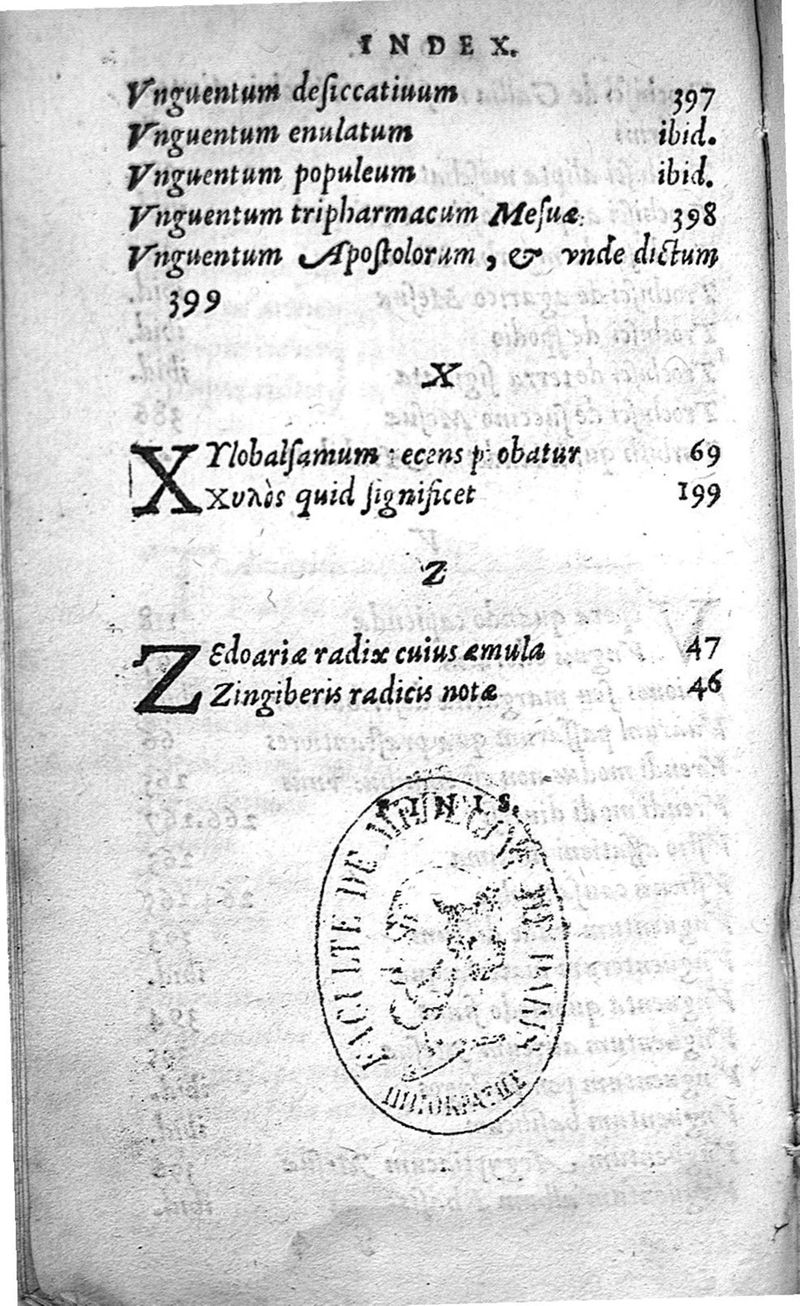 INDEX.
Vnguentum desiccatiuum 397
Vnguentum enulatum ibid.
Vnguentum populeum ibid.
Vnguentum tripharmacum Mesuæ. 398
Vnguentum Apostolorum, & vnde dictum
399
X
XYlobalsamum recens probatur 69
Χυλὸς quid significet 199
Z
ZEdoariæ radix cuius æmula 47
Zingiberis radicis notæ 46
FINIS.
FACULTE DE MEDECINE DE PARIS
HIPPOKRATHE